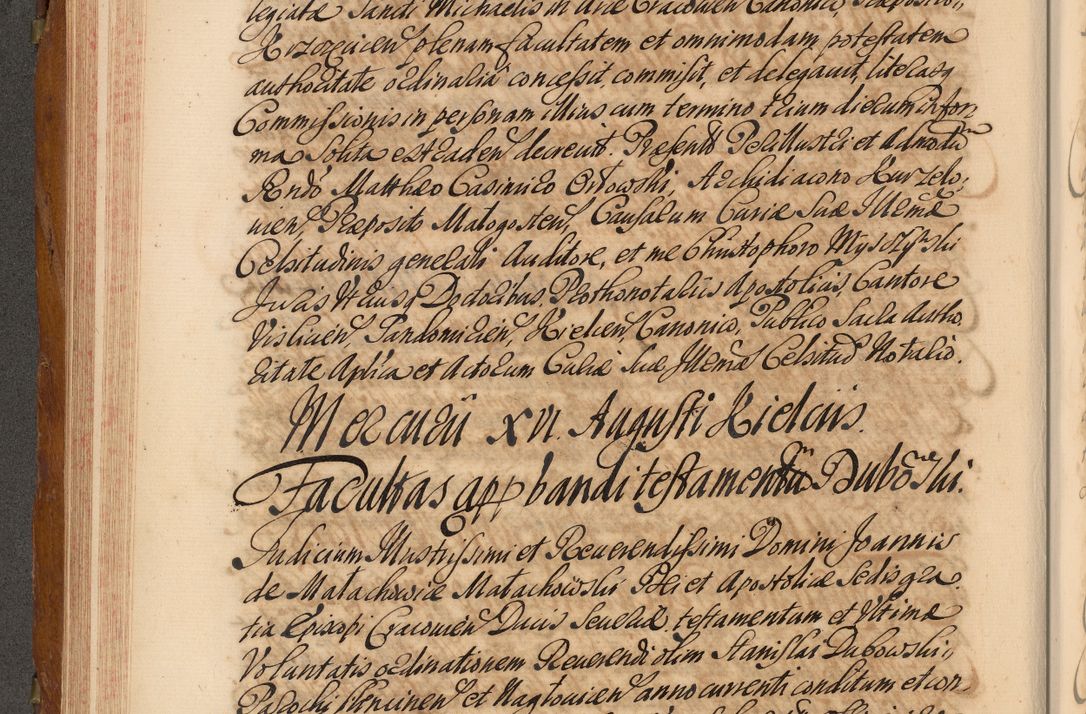 legiatæ Sancti Michaelis in Arce Cracovien Canonico, Præposito
Krzozęcien plenam facultatem et omnimodam potestatem
authoritate ordinaria concessit, commisit, et delegavit, literasq
Commissionis in personam illius cum termino trium dierum in for,
ma solita extraden decrevit. Presentt Perillustri et Admodũ
Rndo Matthæo Casimiro Orłowski, Archidiacono Kurzelo,
vien, Præposito Małogosten, Causarum Curiæ Suæ Illmæ
Celsitudinis generali Auditore, et me Christophoro Myszczynski
Juris Utrius Doctoribus, Prothonotariis Apostolicis, Cantore
Vislicien, Sandomirien, Kielcien Canonico, Publico Sacra Autho,
ritate Aplica et Actorum Curiæ Suæ Illmæ Celsitud Notario.
Mercurii XVI. Augusti Kielciis.
Facultas approbandi testamentũ Dubowski.
Judicium Illustrissimi et Reverendissimi Domini Joannis
de Małachowice Małachowski Dei et Apostolicæ Sedis gra,
tia Episcopi Cracovien Ducis Severiæ. testamentum et ultimæ
Voluntatis ordinationem Reverendi olim Stanislai Dubowski,
Parochi et Nagłovicen anno currenti conditum et con,